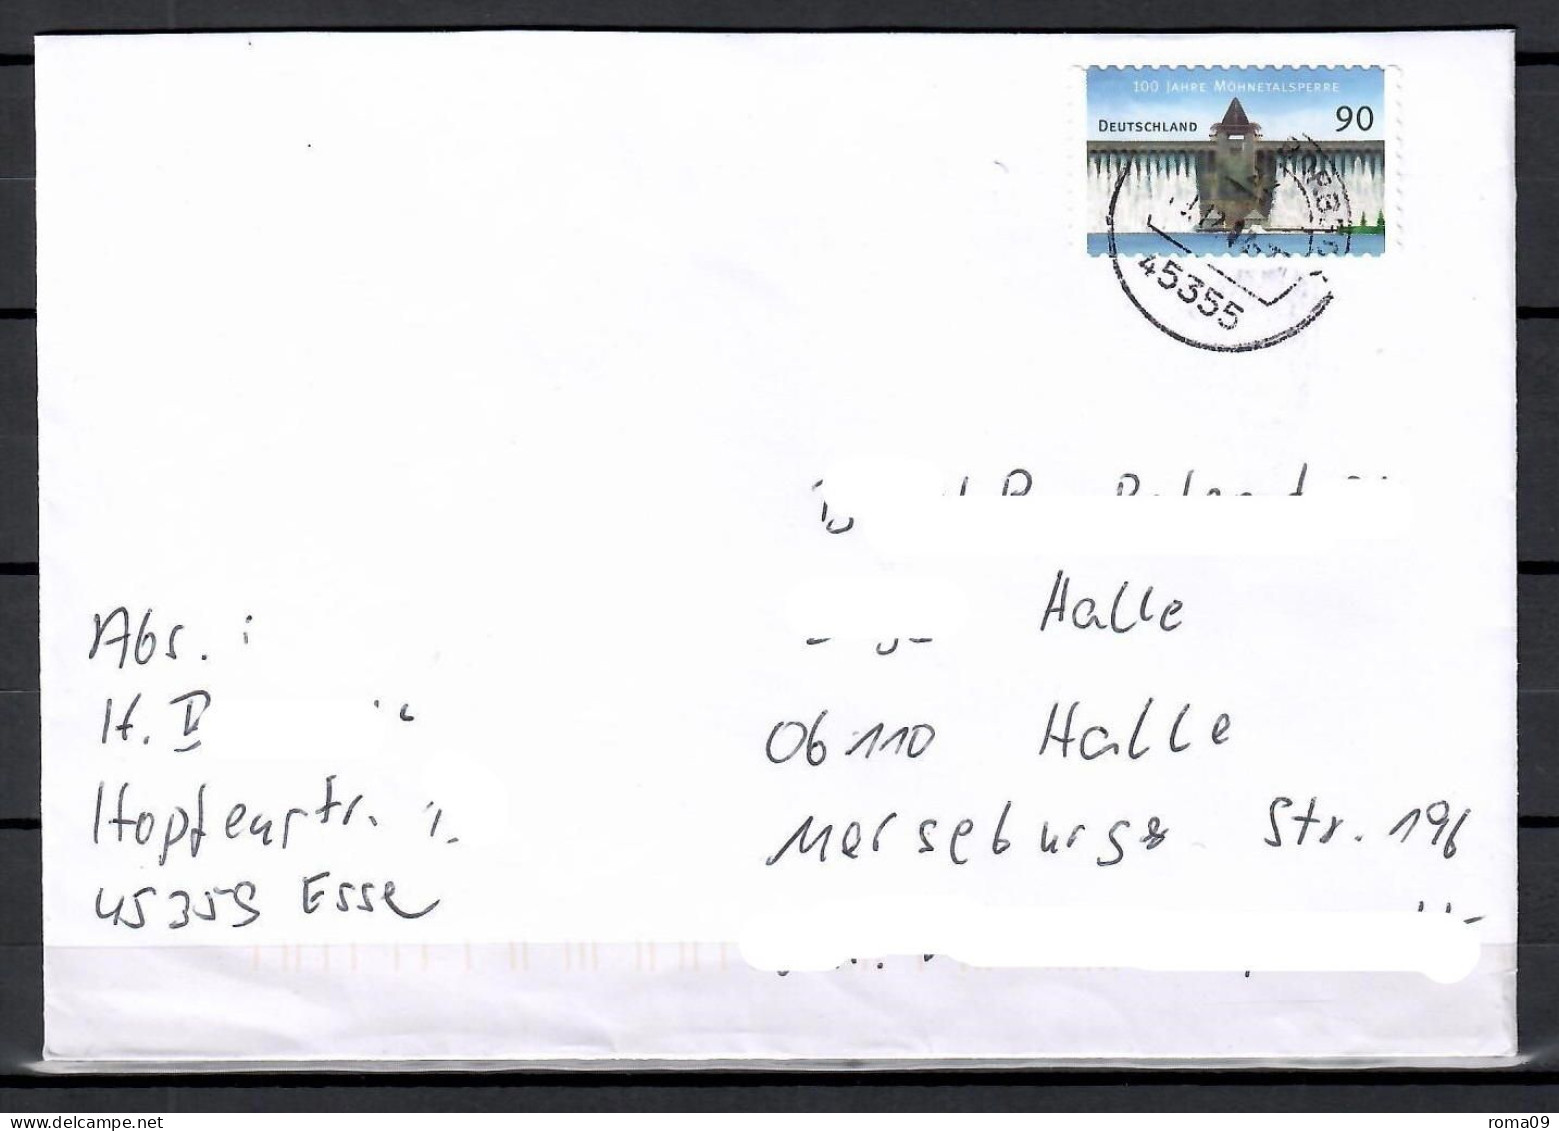 100 JAHRE MÖHNETALSPERRE
DEUTSCHLAND 90
45355
Halle
06110 Halle
Merseburger Str. 196
Abs.:
H.
Hopfenstr.
45359 Esse
roma09